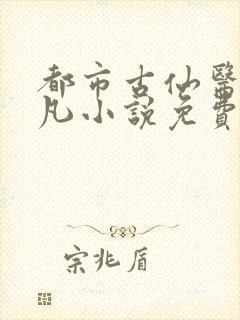 都市古仙醫
凡小說免費
宗兆盾